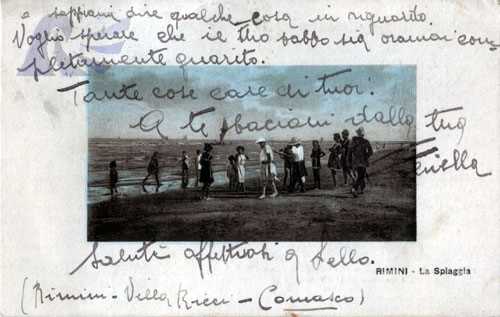 e sappiami dire qualche cosa in riguardo.
Voglio sperare che il tuo babbo sia oramai com-
pletamente guarito.
Tante cose care ai tuoi!
A te bacioni dalla tua
Saluti affettuosi a Lello.
RIMINI - La Spiaggia
(Rimini - Villa Ricci - Comasco)